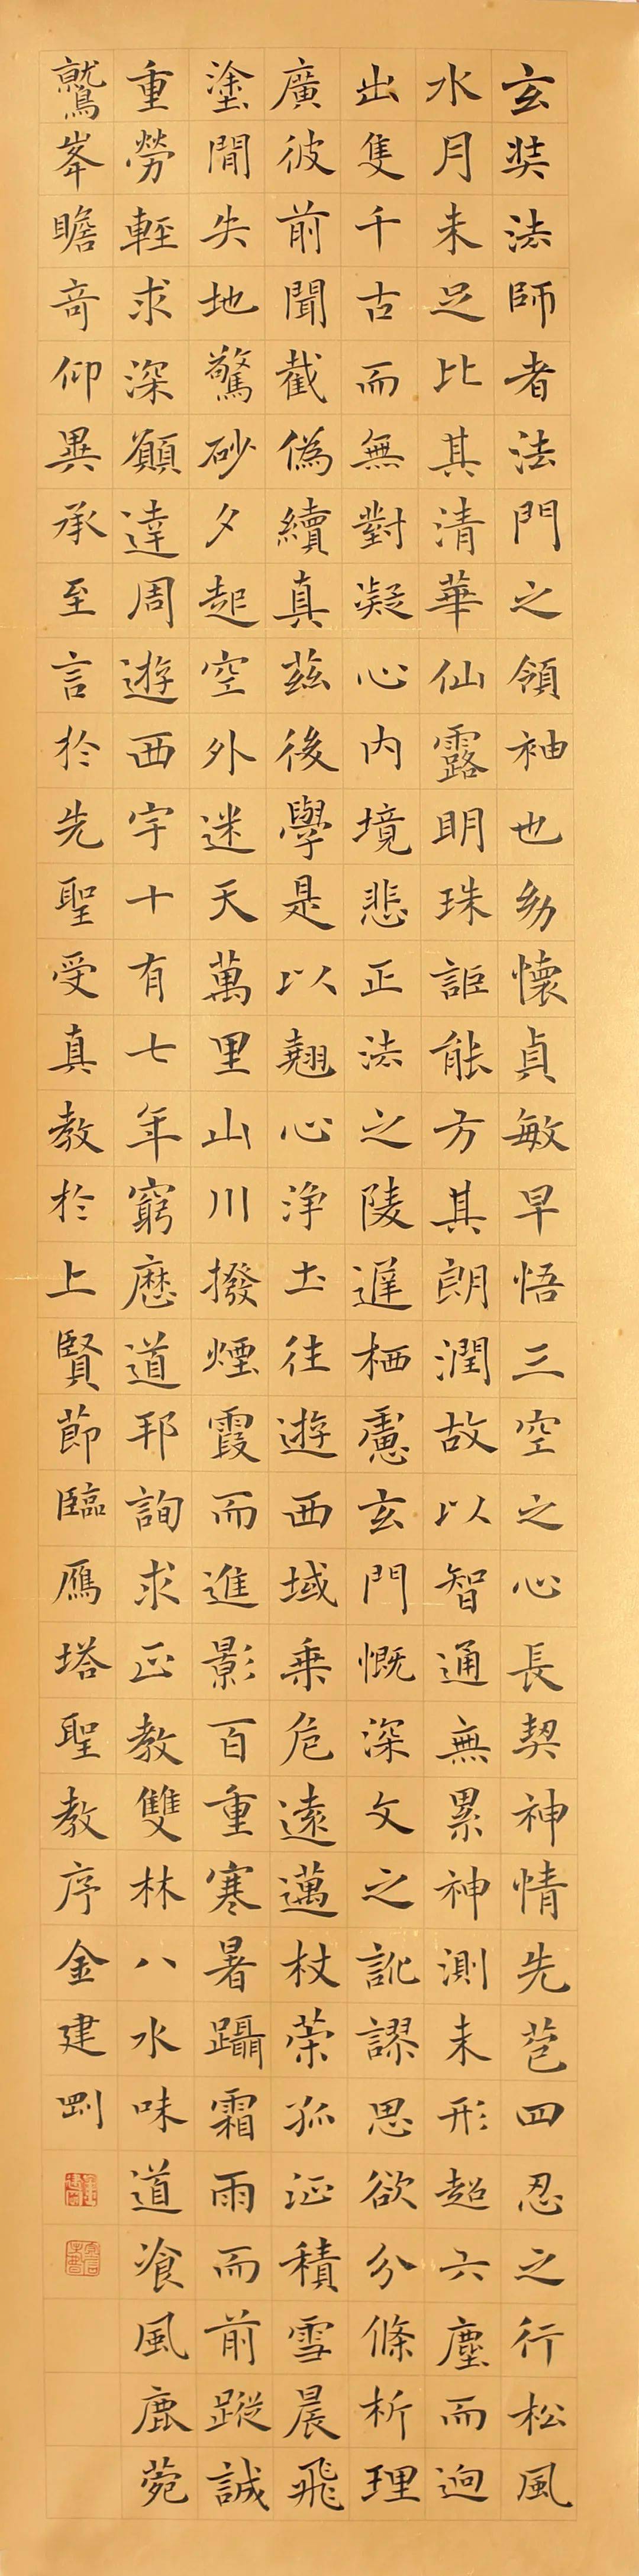 玄奘法師者法門之領袖也幼懷貞敏早悟三空之心長契神情先苞四忍之行松風
水月未足比其清華仙露明珠詎能方其朗潤故以智通無累神測未形超六塵而迥
出隻千古而無對凝心内境悲正法之陵遲栖慮玄門慨深文之訛謬思欲分條析理
廣彼前聞截偽續真茲後學是以翹心淨土往遊西域乗危遠邁杖策孤征積雪晨飛
塗閒失地驚砂夕起空外迷天萬里山川撥煙霞而進影百重寒暑躡霜雨而前蹤誠
重勞輕求深願達周遊西宇十有七年窮歷道邦詢求正教雙林八水味道飡風鹿菀
鷲峯瞻奇仰異承至言於先聖受真教於上賢節臨鴈塔聖教序金建剛